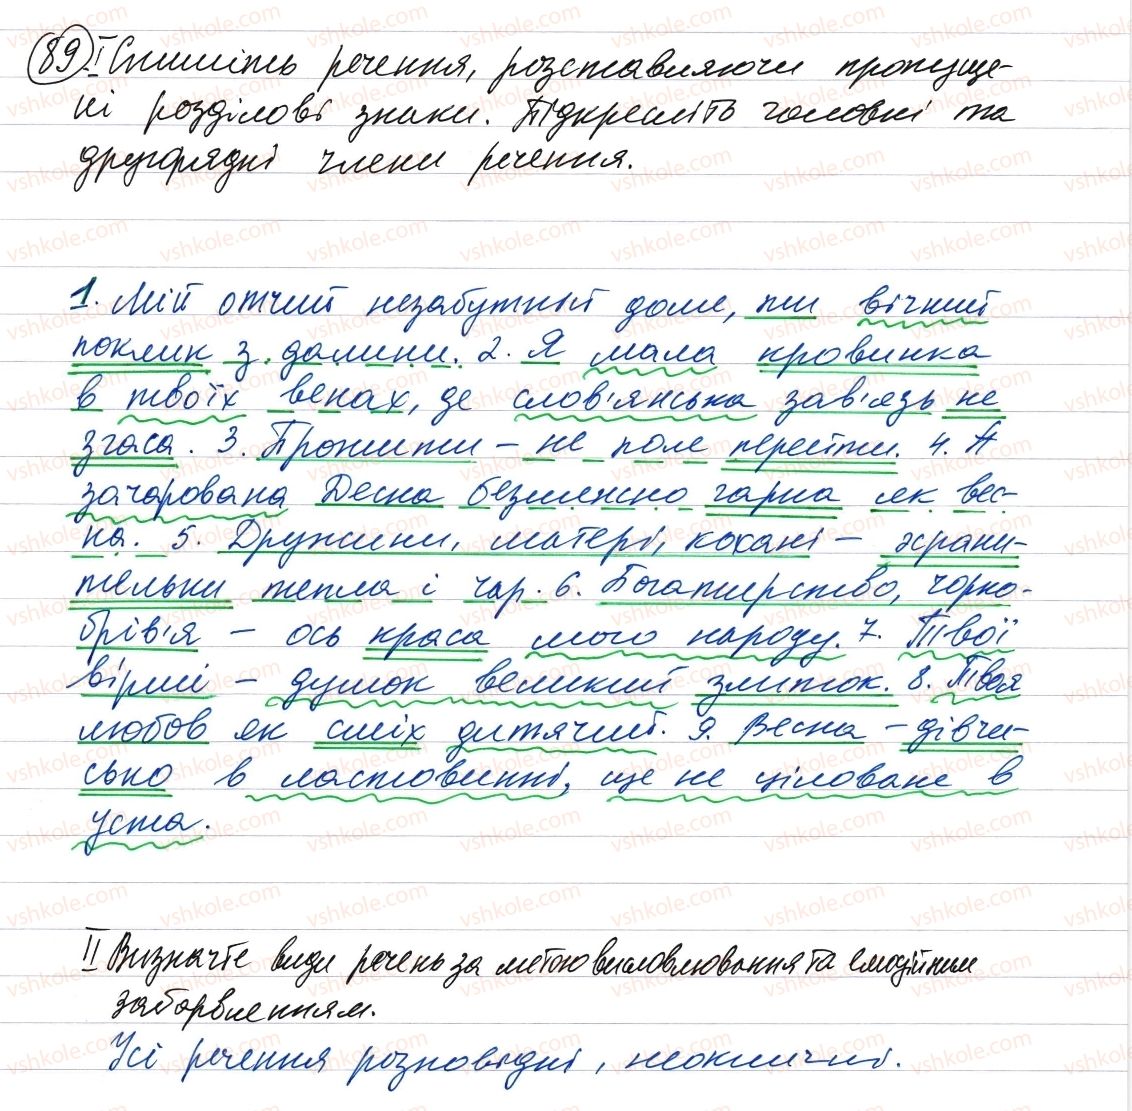 89 I Спишіть речення, розставляючи пропуще-
ні розділові знаки. Підкресліть головні та
другорядні члени речення.
1. Мій отчий незабутній доме, ти вічний
поклик з далини. 2. Я мала кровинка
в твоїх венах, де слов'янська зав'язь не
згаса. 3. Прожити – не поле перейти. 4. А
зачарована Десна безмежно гарна як вес-
на. 5. Дружини, матері, кохані – храни-
тельки тепла і чар. 6. Богатирство, чорно-
брів'я – ось краса мого народу. 7. Твої
вірші – думок великий злиток. 8. Твоя
любов як сміх дитячий. 9. Весна – дівчи-
сько в ластовинні, ще не ціловане в
уста.
II Визначте види речень за метою висловлювання та емоційним
забарвленням.
Усі речення розповідні, неокличні.